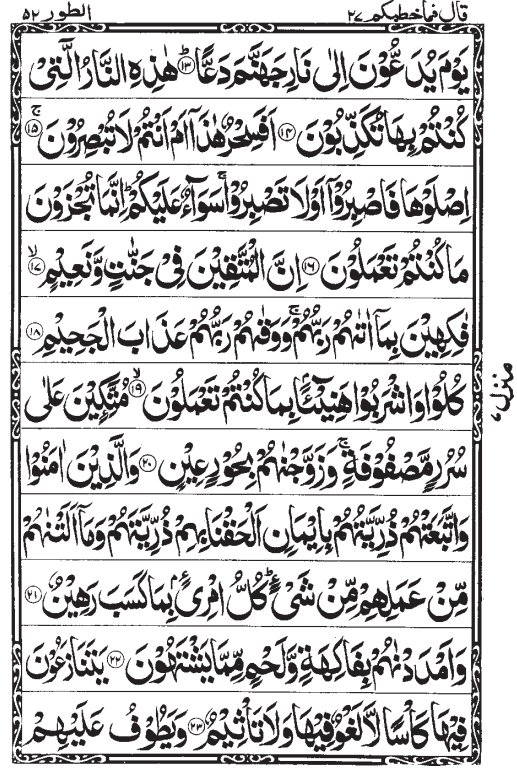 قال فما خطبكم ٢٧
الطور ٥٢
يَوْمَ يُدَعُّوْنَ اِلٰى نَارِ جَهَنَّمَ دَعًّا ؕ﴿۱۳﴾ هٰذِهِ النَّارُ الَّتِىْ
كُنْتُمْ بِهَا تُكَذِّبُوْنَ ﴿۱۴﴾ اَفَسِحْرٌ هٰذَاۤ اَمْ اَنْتُمْ لَا تُبْصِرُوْنَ ۚ﴿۱۵﴾
اِصْلَوْهَا فَاصْبِرُوْۤا اَوْ لَا تَصْبِرُوْا ۚ سَوَآءٌ عَلَيْكُمْ ؕ اِنَّمَا تُجْزَوْنَ
مَا كُنْتُمْ تَعْمَلُوْنَ ﴿۱۶﴾ اِنَّ الْمُتَّقِيْنَ فِىْ جَنّٰتٍ وَّنَعِيْمٍ ۙ﴿۱۷﴾
فٰكِهِيْنَ بِمَاۤ اٰتٰٮهُمْ رَبُّهُمْ ۚ وَوَقٰٮهُمْ رَبُّهُمْ عَذَابَ الْجَحِيْمِ ﴿۱۸﴾
كُلُوْا وَاشْرَبُوْا هَنِيْٓئًۢا بِمَا كُنْتُمْ تَعْمَلُوْنَ ۙ﴿۱۹﴾ مُتَّكِـِٕيْنَ عَلٰى
سُرُرٍ مَّصْفُوْفَةٍ ۚ وَزَوَّجْنٰهُمْ بِحُوْرٍ عِيْنٍ ﴿۲۰﴾ وَالَّذِيْنَ اٰمَنُوْا
وَاتَّبَعَتْهُمْ ذُرِّيَّتُهُمْ بِاِيْمَانٍ اَلْحَقْنَا بِهِمْ ذُرِّيَّتَهُمْ وَمَاۤ اَلَتْنٰهُمْ
مِّنْ عَمَلِهِمْ مِّنْ شَىْءٍ ؕ كُلُّ امْرِیءٍۢ بِمَا كَسَبَ رَهِيْنٌ ﴿۲۱﴾
وَاَمْدَدْنٰهُمْ بِفَاكِهَةٍ وَّلَحْمٍ مِّمَّا يَشْتَهُوْنَ ﴿۲۲﴾ يَتَنَازَعُوْنَ
فِيْهَا كَاْسًا لَّا لَغْوٌ فِيْهَا وَلَا تَاْثِيْمٌ ﴿۲۳﴾ وَيَطُوْفُ عَلَيْهِمْ
منزل ٧